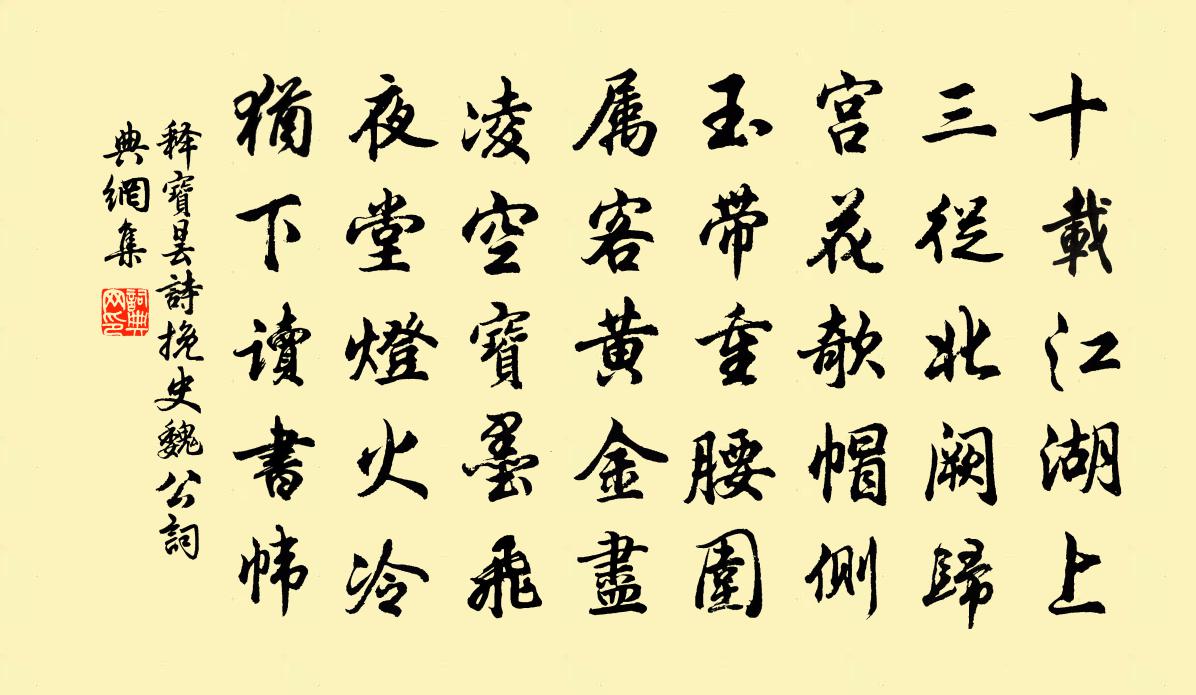 十載江湖上
三從北闕歸
宮花欹帽側
玉带重腰圍
属客黄金盡
凌空寶墨飛
夜堂燈火冷
猶下讀書帏
释寶昙詩挽史魏公詞
典網集
詞典
网印